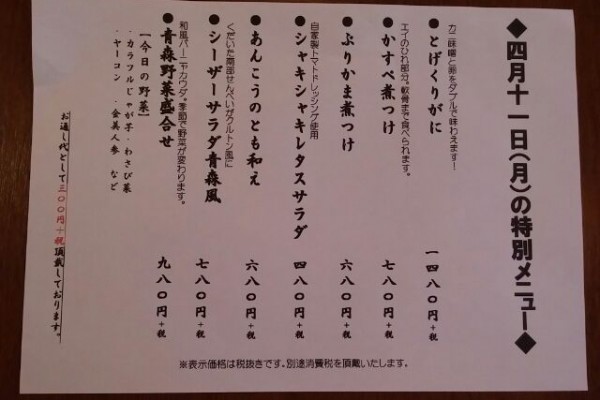 ◆四月十一日(月)の特別メニュー◆
カニ味噌と卵をダブルで味わえます!
●とげくりがに 一四八〇円+税
エイのひれ部分。軟骨まで食べられます。
●かすべ煮つけ 七八〇円+税
●ぶりかま煮つけ 六八〇円+税
自家製トマトドレッシング使用
●シャキシャキレタスサラダ 四八〇円+税
●あんこうのとも和え 六八〇円+税
くだいた南部せんべいがクルトン風に
●シーザーサラダ青森風 七八〇円+税
和風バーニャカウダ。季節で野菜が変わります。
●青森野菜盛合せ 九八〇円+税
【今日の野菜】
・カラフルじゃが芋・わさび菜
・ヤーコン ・金美人参 など
お通し代として三〇〇円+税頂戴しております。
※表示価格は税抜きです。別途消費税を頂戴いたします。